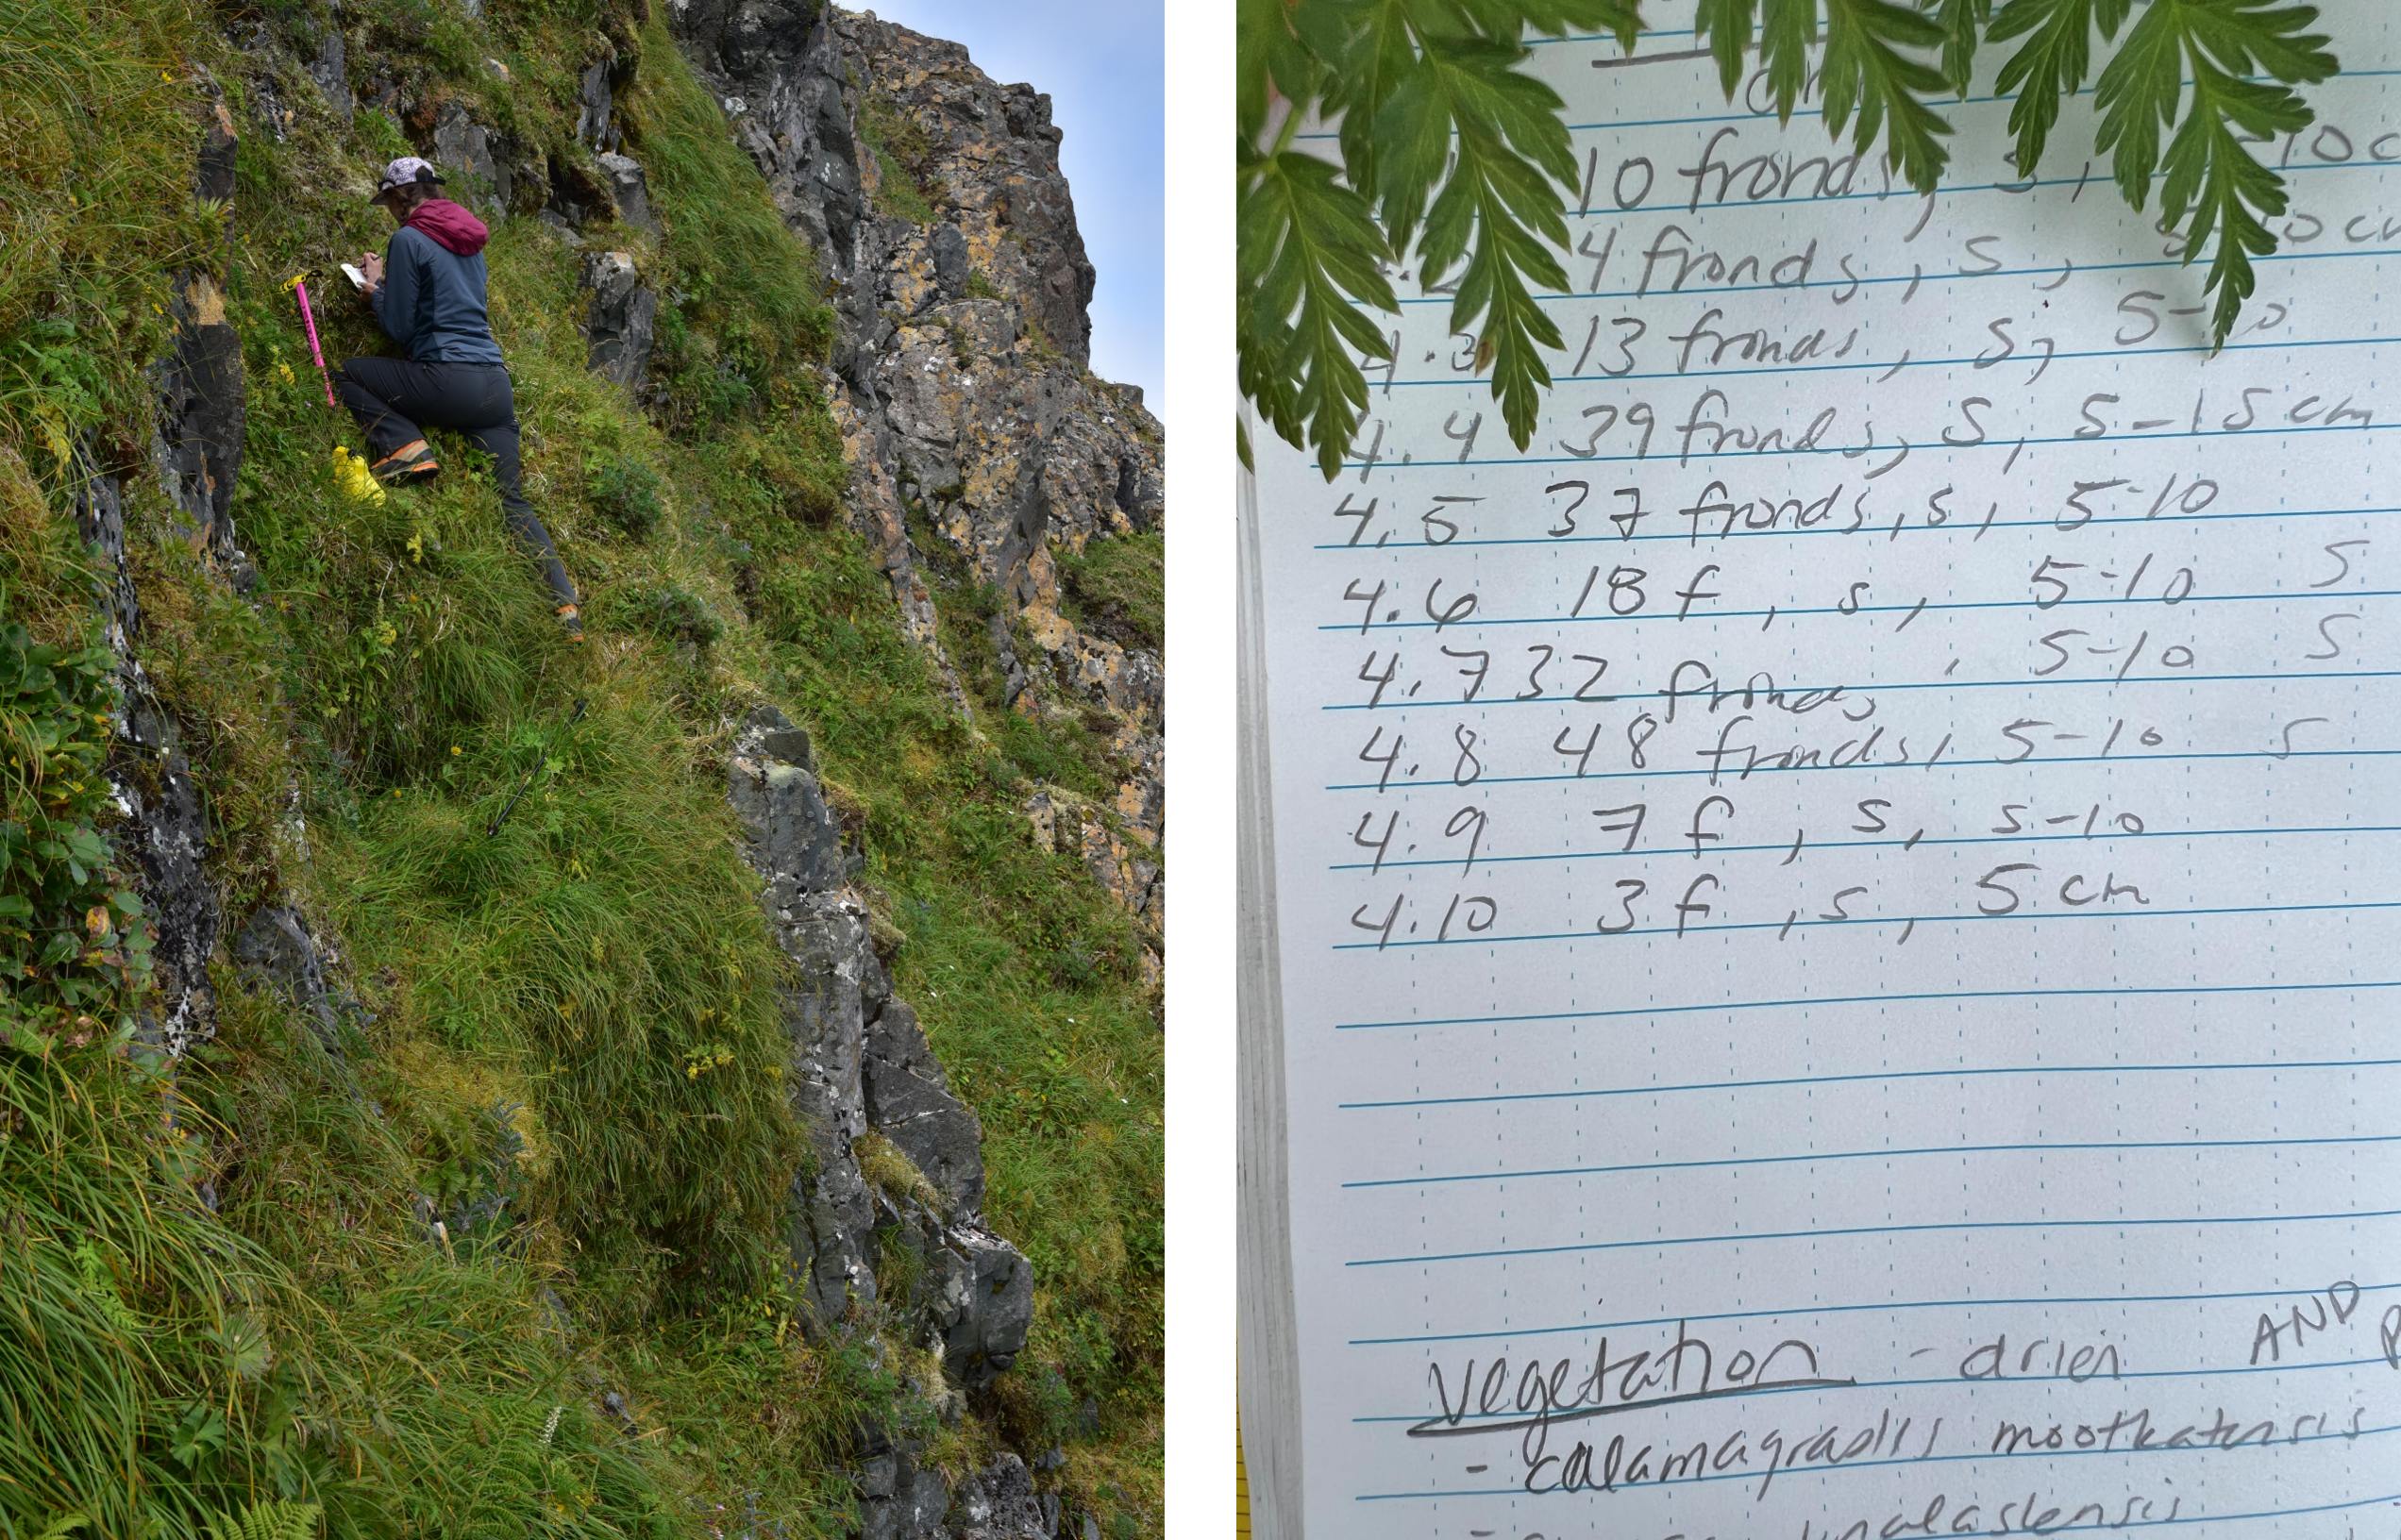 cm
10 fronds, s, -10c
4 fronds, s, 5-10 cm
4.3 13 fronds, s, 5-10
4.4 39 fronds, s, 5-15 cm
4.5 37 fronds, s, 5-10
4.6 18 f, s, 5-10 S
4.7 32 fronds, 5-10 S
4.8 48 fronds, 5-10 S
4.9 7 f, s, 5-10
4.10 3 f, s, 5 cm
Vegetation - drier AND
- calamagrastis nootkatensis
- unalaslensis